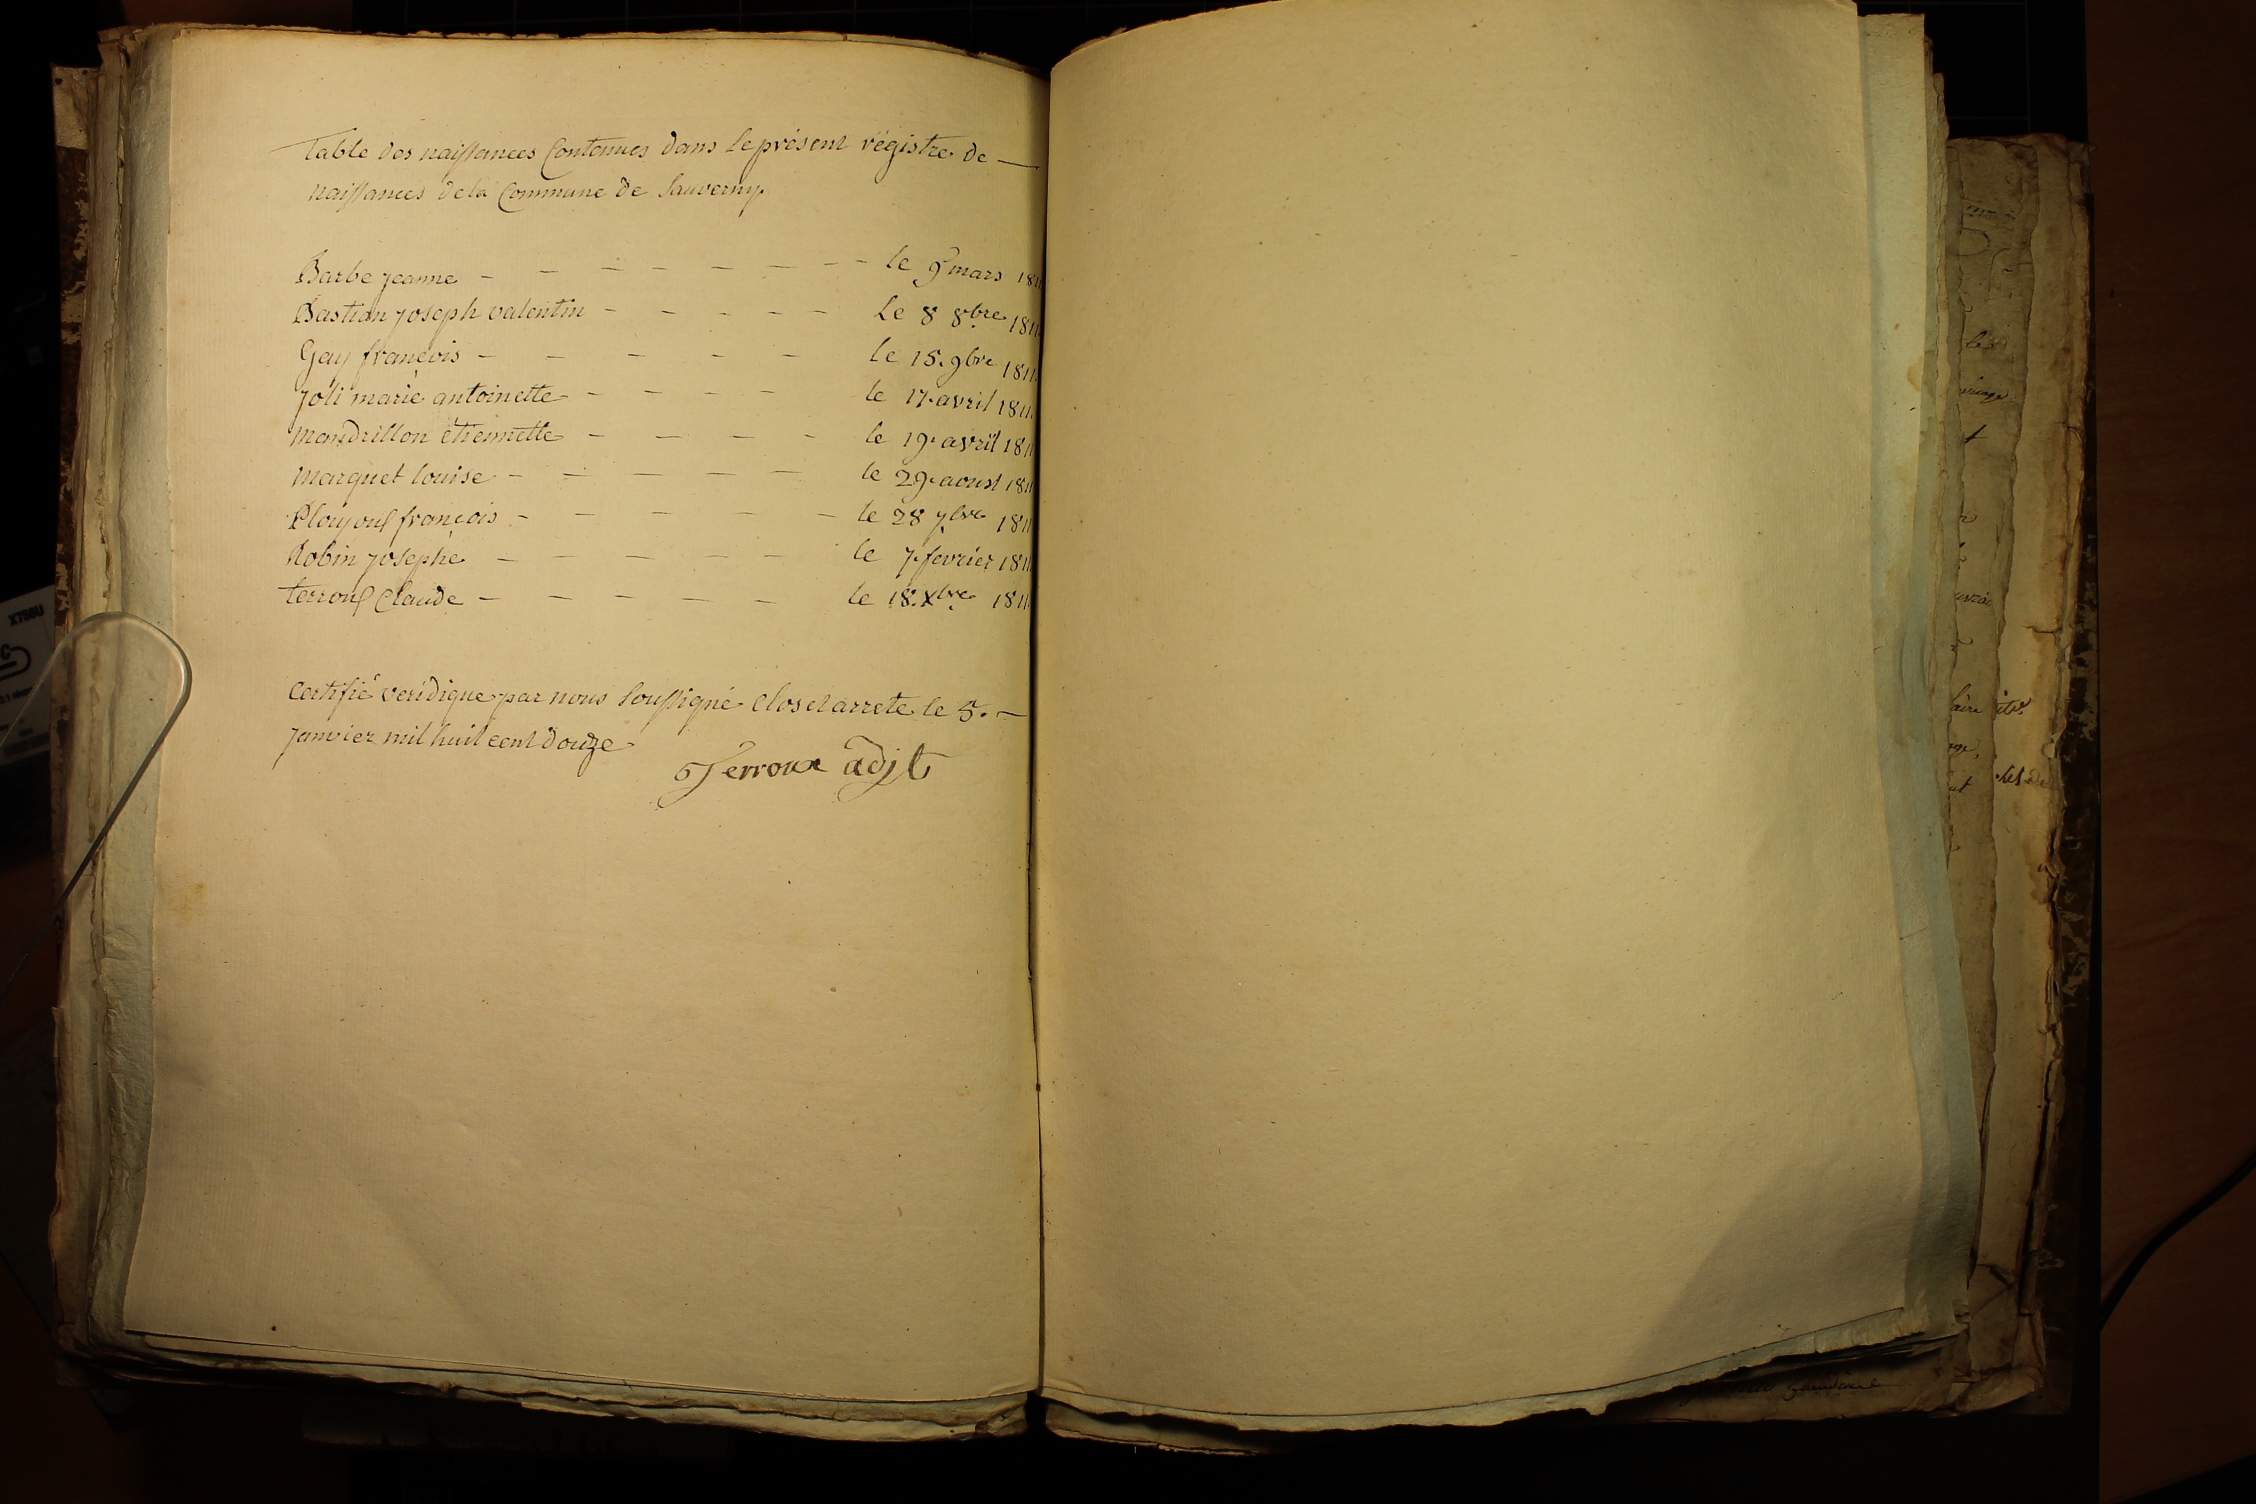 Table des naissances Contenues dans le présent régistre de —
naissances de la Commune de Sauverny.
Barbe jeanne - — — — — — — - le 9 mars 1811
Bastian joseph valentin - - - - - Le 8 8bre 1811
Gay françois - - - - - le 15. 9bre 1811.
joli marie antoinette - - - - le 17. avril 1811.
mandrillon étiennette - - - - le 19. avril 1811
marquet louise - - - - - le 29. aoust 1811
françois - - - - - - le 28 7bre 1811
Robin josephe - - - - - - le 7. fevrier 1811
terroux Claude - - - - - - le 18. Xbre 1811.
Certifié veridique par nous soussigné Clos et arreté le 5. —
janvier mil huit cent douze
Terroux adjt